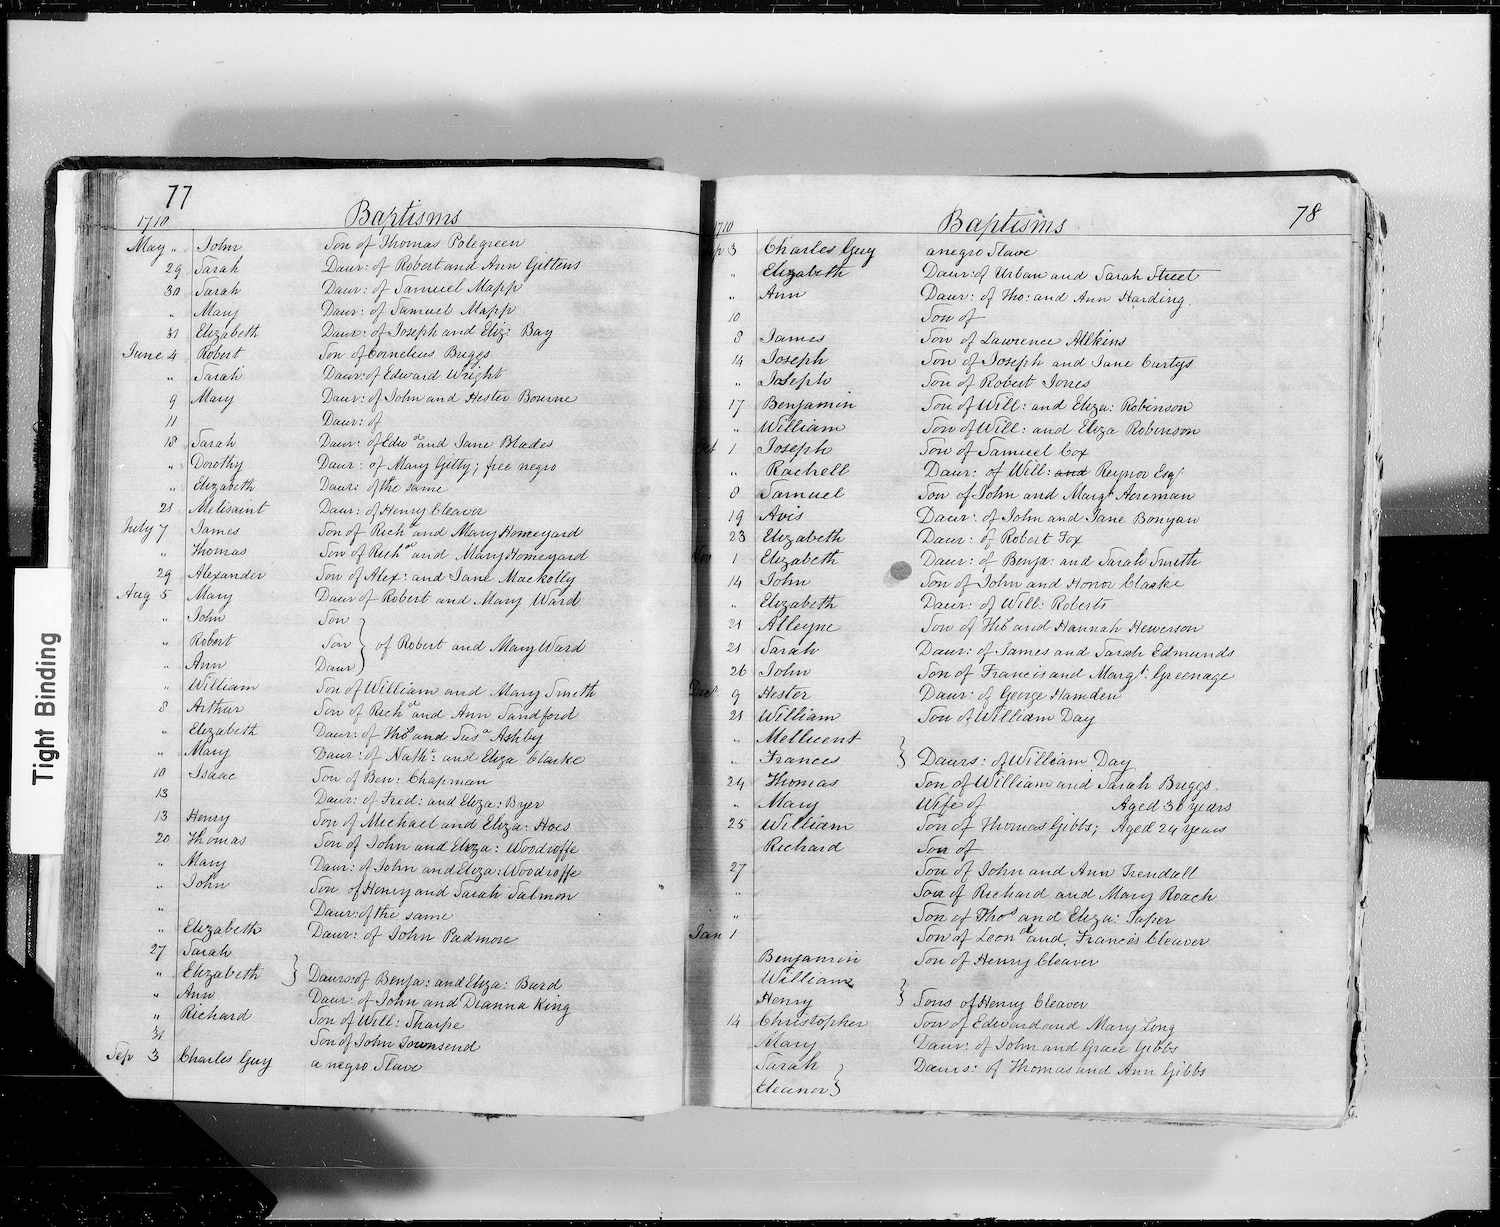 Tight Binding
77
1710 Baptisms
May " John Son of Thomas Polegreen
29 Sarah Daur: of Robert and Ann Gittens
30 Sarah Daur: of Samuel Mapp
" Mary Daur: of Samuel Mapp
31 Elizabeth Daur: of Joseph and Eliz: Bay
June 4 Robert Son of Cornelius Briggs
" Sarah Daur: of Edward Wright
9 Mary Daur: of John and Hester Bourne
11 Daur: of
18 Sarah Daur: of Edwd and Jane Blades
" Dorothy Daur: of Mary Gitty; free negro
" Elizabeth Daur: of the same
21 Melisaint Daur: of Henry Cleaver
July 7 James Son of Richd and Mary Homeyard
" Thomas Son of Richd and Mary Homeyard
29 Alexander Son of Alex: and Jane Mackolly
Aug 5 Mary Daur of Robert and Mary Ward
" John Son
" Robert Son } of Robert and Mary Ward
" Ann Daur
" William Son of William and Mary Smith
8 Arthur Son of Richd and Ann Sandford
" Elizabeth Daur: of Thos and Susa Ashby
" Mary Daur: of Nathl: and Eliza Clarke
10 Isaac Son of Ben: Chapman
13 Daur: of Fred: and Eliza: Byer
13 Henry Son of Michael and Eliza: Hoes
20 Thomas Son of John and Eliza: Woodroffe
" Mary Daur: of John and Eliza: Woodroffe
" John Son of Henry and Sarah Salmon
" Daur: of the same
" Elizabeth Daur: of John Padmore
27 Sarah
" Elizabeth } Daurs: of Benja: and Eliza: Burd
" Ann Daur: of John and Dianna King
" Richard Son of Will: Tharpe
31 Son of John Townsend
Sep 3 Charles Guy a negro Slave
78
1710 Baptisms
Sep 3 Charles Guy a negro Slave
" Elizabeth Daur: of Urban and Sarah Street
" Ann Daur: of Tho: and Ann Harding
10 Son of
8 James Son of Lawrence Allkins
14 Joseph Son of Joseph and Jane Curtys
" Joseph Son of Robert Jones
17 Benjamin Son of Will: and Eliza: Robinson
" William Son of Will: and Eliza Robinson
Oct 1 Joseph Son of Samuel Cox
" Rachell Daur: of Will: and Reynor Esqr
8 Samuel Son of John and Margt Acreman
19 Avis Daur: of John and Jane Bonyan
23 Elizabeth Daur: of Robert Fox
Nov 1 Elizabeth Daur: of Benja: and Sarah Smith
14 John Son of John and Honor Clarke
" Elizabeth Daur: of Will: Roberts
21 Alleyne Son of Thos and Hannah Hewerson
21 Sarah Daur: of James and Sarah Edmunds
26 John Son of Francis and Margt: Greenage
Decr 9 Hester Daur: of George Hamden
21 William Son of William Day
" Mellicent
" Frances } Daurs: of William Day
24 Thomas Son of William and Sarah Briggs.
" Mary Wife of Aged 30 years
25 William Son of Thomas Gibbs; Aged 24 years
Richard Son of
27 Son of John and Ann Trendall
" Son of Richard and Mary Roach
" Son of Thos and Eliza: Taper
Jan 1 Son of Leond and Frances Cleaver
Benjamin Son of Henry Cleaver
William
Henry } Sons of Henry Cleaver
14 Christopher Son of Edward and Mary Long
Mary Daur: of John and Grace Gibbs
Sarah Daurs: of Thomas and Ann Gibbs
Eleanor }